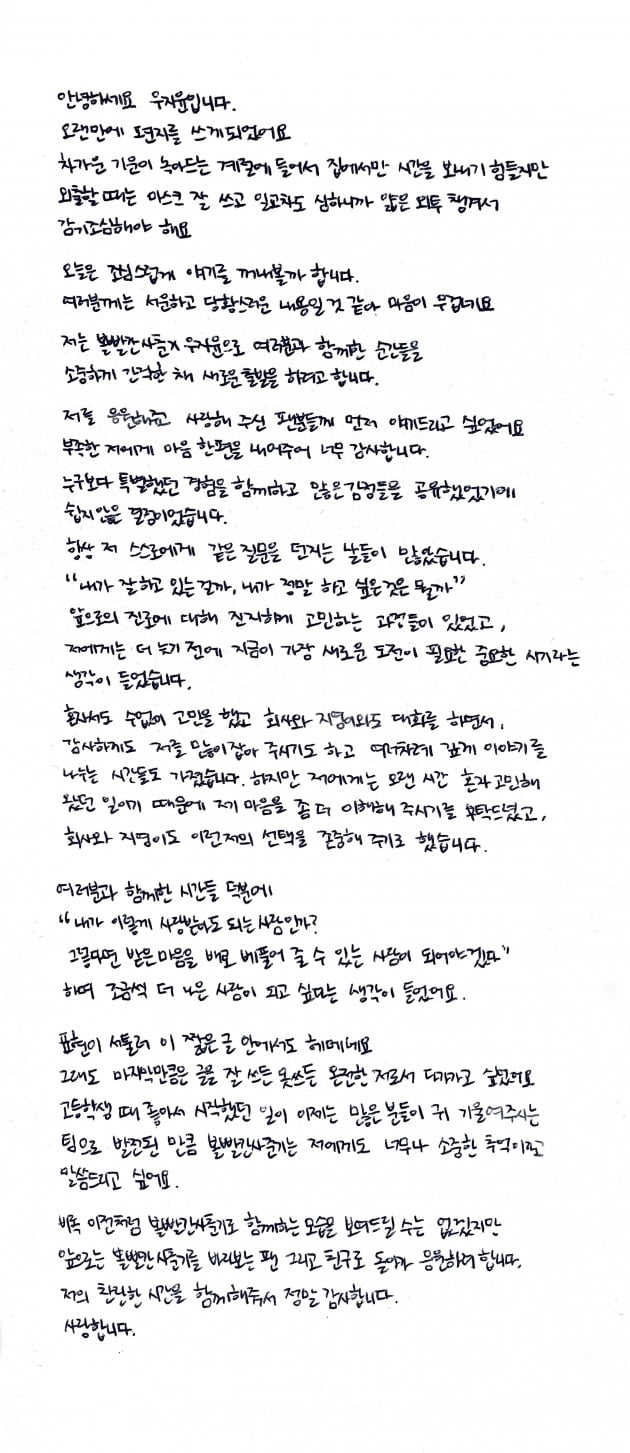 안녕하세요 우지윤입니다.
오랜만에 편지를 쓰게되었어요
차가운 기운이 녹아드는 계절에 들어서 집에서만 시간을 보내기 힘들지만
외출할 때는 마스크 잘 쓰고 일교차도 심하니까 얇은 외투 챙겨서
감기조심해야 해요
오늘은 조심스럽게 얘기를 꺼내볼까 합니다.
여러분께는 서운하고 당황스러운 내용일 것 같아 마음이 무겁네요
저는 볼빨간사춘기 우지윤으로 여러분과 함께한 순간들을
소중하게 간직한 채 새로운 출발을 하려고 합니다.
저를 응원해주고 사랑해 주신 팬분들께 먼저 얘기드리고 싶었어요
부족한 저에게 마음 한편을 내어주어 너무 감사합니다.
누구보다 특별했던 경험을 함께하고 많은 감정들을 공유했었기에
쉽지않은 결정이었습니다.
항상 저 스스로에게 같은 질문을 던지는 날들이 많았습니다.
"내가 잘하고 있는걸까, 내가 정말 하고 싶은것은 뭘까"
앞으로의 진로에 대해 진지하게 고민하는 과정들이 있었고,
저에게는 더 늦기 전에 지금이 가장 새로운 도전이 필요한 중요한 시기라는
생각이 들었습니다.
혼자서도 수없이 고민을 했고 회사와 지영이와도 대화를 하면서,
감사하게도 저를 많이 잡아 주시기도 하고 여러차례 깊게 이야기를
나누는 시간들도 가졌습니다. 하지만 저에게는 오랜 시간 혼자 고민해
왔던 일이기 때문에 제 마음을 좀 더 이해해 주시기를 부탁드렸고,
회사와 지영이도 이런 저의 선택을 존중해 주기로 했습니다.
여러분과 함께한 시간들 덕분에
"내가 이렇게 사랑받아도 되는 사람인가?
그렇다면 받은 마음을 배로 베풀어 줄 수 있는 사람이 되어야겠다"
하며 조금씩 더 나은 사람이 되고 싶다는 생각이 들었어요.
표현이 서툴러 이 짧은 글 안에서도 헤매네요
그래도 마지막만큼은 글을 잘 쓰든 못쓰든 온전한 저로서 다가가고 싶었어요
고등학생 때 좋아서 시작했던 일이 이제는 많은 분들이 귀 기울여주시는
팀으로 발전된 만큼 볼빨간사춘기는 저에게도 너무나 소중한 추억이라고
말씀드리고 싶어요.
비록 이전처럼 볼빨간사춘기로 함께하는 모습을 보여드릴 수는 없겠지만
앞으로는 볼빨간사춘기를 바라보는 팬 그리고 친구로 돌아가 응원하려 합니다.
저의 찬란한 시간을 함께해줘서 정말 감사합니다.
사랑합니다.